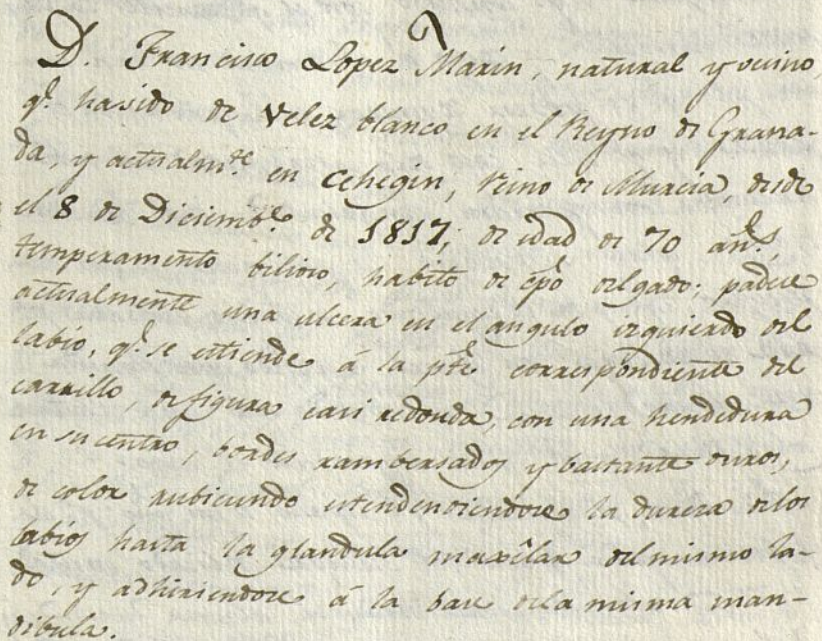 D. Francisco Lopez Marin, natural y vecino,
q.e ha sido de Velez blanco en el Reyno de Grana-
da, y actualm.te en Cehegin, Reino de Murcia, desde
el 8 de Diciemb.e de 1817; de edad de 70 añ.s,
temperamento bilioso, habito de cpo delgado; padece
actualmente una ulcera en el angulo izquierdo del
labio, q.e se estiende á la pte correspondiente del
carrillo, de figura casi redonda, con una hendedura
en su centro, bordes rambersados y bastante duros,
de color rubicundo estendendiendose la dureza de los
labios hasta la glandula maxîlar del mismo la-
do, y adhiriendose á la base de la misma man-
dibula.